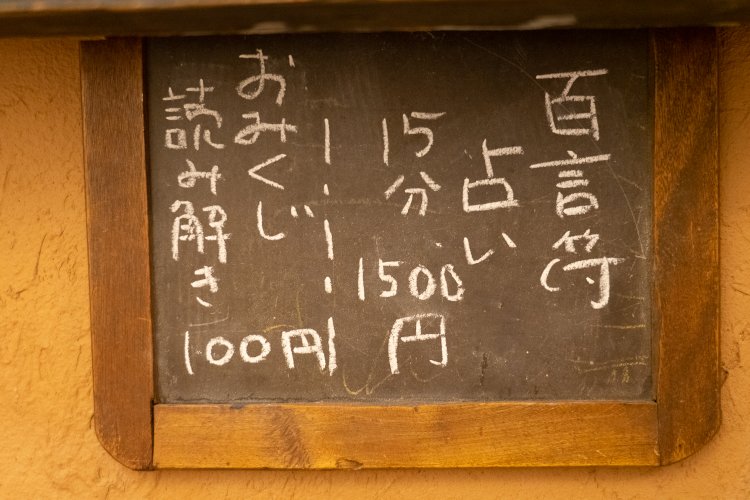 百言符
占い
15分
1500円
おみくじ
読み解き
100円